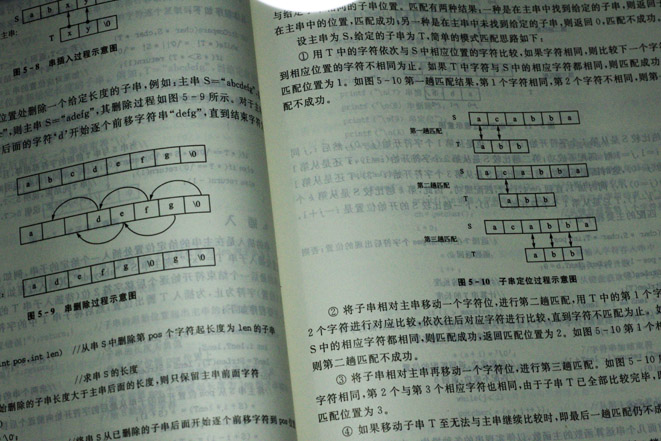 S
a b x y
主串:
T
x y \0
图 5-8 串插入过程示意图
位置处删除一个给定长度的子串,例如:主串 S="abcdefg",
则主串S="adefg",其删除过程如图 5-9 所示。对于主
后面的字符'd'开始逐个前移字符串"defg",直到结束字符
a b c d e f g \0
a d e f g \0
a d e f g \0 g \0
图 5-9 串删除过程示意图
int pos,int len) //从串 S 中删除第 pos 个字符起长度为 len 的子串
//求串 S 的长度
始删除的子串长度大于主串后面的长度,则只保留主串前面字符
将串 S 从已删除的子串后面开始逐个前移字符到 pos位
与给定 的子串位置。匹配有两种结果:一种是在主串中找到给定的子串,则返回
在主串中的位置,匹配成功;另一种是在主串中未找到给定的子串,则返回 0,匹配不成功。
设主串为 S,给定的子串为 T,简单的模式匹配思路如下:
① 用 T 中的字符依次与 S 中相应位置的字符比较,如果字符相同,则比较下一个字
到相应位置的字符不相同为止。如果 T 中字符与 S 中的相应字符都相同,则匹配成功
匹配位置为 1。如图 5-10 第一趟匹配结果,第 1 个字符相同,第 2 个字符不相同,则第
配不成功。
S a c a b b a
第一趟匹配
T a b b
S a c a b b a
第二趟匹配
T a b b
S a c a b b a
第三趟匹配
T a b b
图 5-10 子串定位过程示意图
② 将子串相对主串移动一个字符位,进行第二趟匹配,用 T 中的第 1 个字
2 个字符进行对应比较,依次往后对应字符进行比较,直到字符不匹配为止。如
S 中的相应字符都相同,则匹配成功;返回匹配位置为 2。如图 5-10 第 1 个相
则第二趟匹配不成功。
③ 将子串相对主串再移动一个字符位,进行第三趟匹配。如图 5-10
字符相同,第 2 个与第 3 个相应字符也相同,由于子串 T 已全部比较完毕,
匹配位置为 3。
④ 如果移动子串 T 至无法与主串继续比较时,即最后一趟匹配仍不成